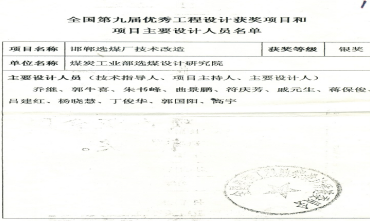 全国第九届优秀工程设计获奖项目和
项目主要设计人员名单
项目名称 邯郸选煤厂技术改造 获奖等级 银奖
单位名称 煤炭工业部选煤设计研究院
主要设计人员(技术指导人、项目主持人、主要设计人)
乔继、郭牛喜、朱书峰、曲景鹏、符庆芳、戚元生、蒋保俊、
吕建红、杨晓慧、丁俊华、郭国阳、高宇